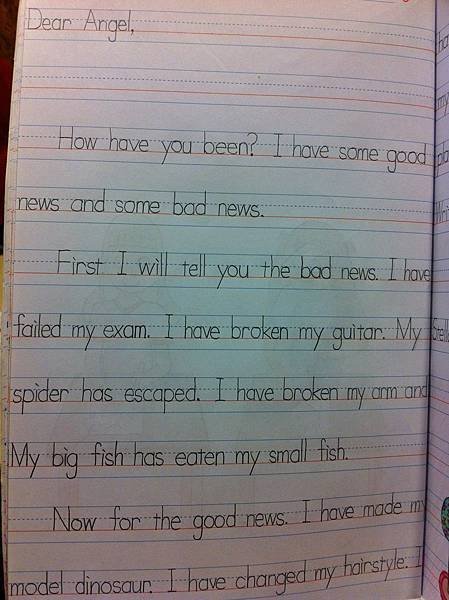 Dear Angel,
How have you been? I have some good
news and some bad news.
First I will tell you the bad news. I have
failed my exam. I have broken my guitar. My
spider has escaped. I have broken my arm and
My big fish has eaten my small fish.
Now for the good news. I have made my
model dinosaur. I have changed my hairstyle. I